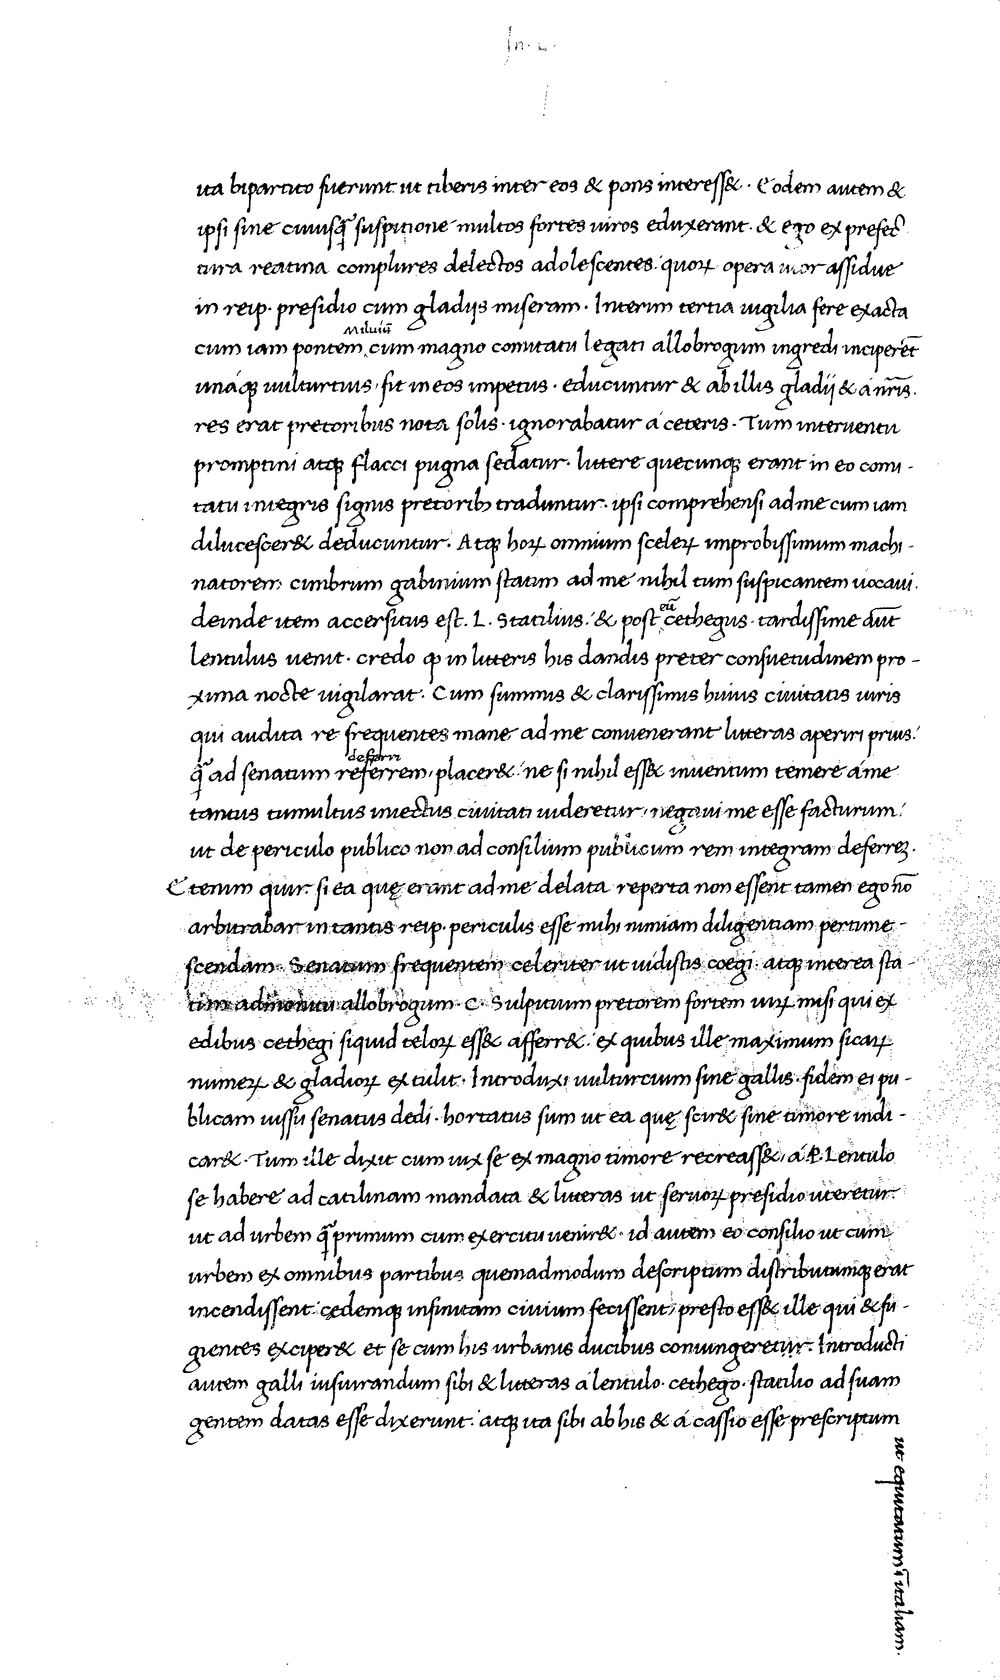 In. L.
ita bipartito fuerunt ut tiberis inter eos & pons interess&. Eodem autem &
ipsi sine cuiusq̃ suspitione multos fortes uiros eduxerant. & ego ex prefec̃
tura reatina complures delectos adolescentes. quoꝝ opera utor assidue
in reip. presidio cum gladijs miseram. Interim tertia uigilia fere exacta
Miluiũ
cum iam pontem cum magno comitatu legati allobrogum ingredi inciperẽt
unáqꝫ uulturtius. fit in eos impetus. educuntur & ab illis gladij & á nr̃is.
res erat pretoribus nota solis. ignorabatur á ceteris. Tum interuentu
promptini atqꝫ flacci pugna sedatur. littere quecunqꝫ erant in eo comi-
tatu integris signis pretoribꝫ traduntur. ipsi comprehensi ad me cum iam
dilucescer& deducuntur. Atqꝫ hoꝝ omnium sceleꝝ improbissimum machi-
natorem cimbrum gabinium statim ad me nihil tum suspicantem uocaui.
eũ
deinde item accersitus est. L. Statilius. & post cethegus. tardissime aũt
lentulus uenit. credo ꝙ in litteris his dandis preter consuetudinem pro-
xima nocte uigilarat. Cum summis & clarissimis huius ciuitatis uiris
qui audita re frequentes mane ad me conuenerant litteras aperiri prius.
deferri
q̃ ad senatum referrem, placer&. ne si nihil ess& inuentum temere á me
tantus tumultus iniectus ciuitati uideretur. negaui me esse facturum.
ut de periculo publico non ad consilium publicum rem integram deferreꝫ.
Etenim quir. si ea quę erant ad me delata reperta non essent tamen ego nõ
arbitrabar in tantis reip. periculis esse mihi nimiam diligentiam pertime-
scendam. Senatum frequentem celeriter ut uidistis coegi. atqꝫ interea sta-
tim admonitu allobrogum. C. Sulpitium pretorem fortem uiꝝ misi qui ex
edibus cethegi siquid teloꝝ ess& afferr&. ex quibus ille maximum sicaꝝ
numeꝝ & gladioꝝ extulit. Introduxi uulturcium sine gallis. fidem ei pu-
blicam iussu senatus dedi. hortatus sum ut ea quę scir& sine timore indi-
car&. Tum ille dixit cum uix se ex magno timore recreass&, á P. Lentulo
se habere ad catilinam mandata & litteras ut seruoꝝ presidio uteretur.
ut ad urbem q̃ primum cum exercitu uenir&. id autem eo consilio ut cum
urbem ex omnibus partibus quemadmodum descriptum distributumqꝫ erat
incendissent. cędemqꝫ infinitam ciuium fecissent, presto ess& ille qui & fu-
gientes exciper& et se cum his urbanis ducibus coniungeretur. Introducti
autem galli iusiurandum sibi & litteras á lentulo. cethego. statilio ad suam
gentem datas esse dixerunt. atqꝫ ita sibi ab his & á cassio esse prescriptum
ut equitatum ĩ italiam.